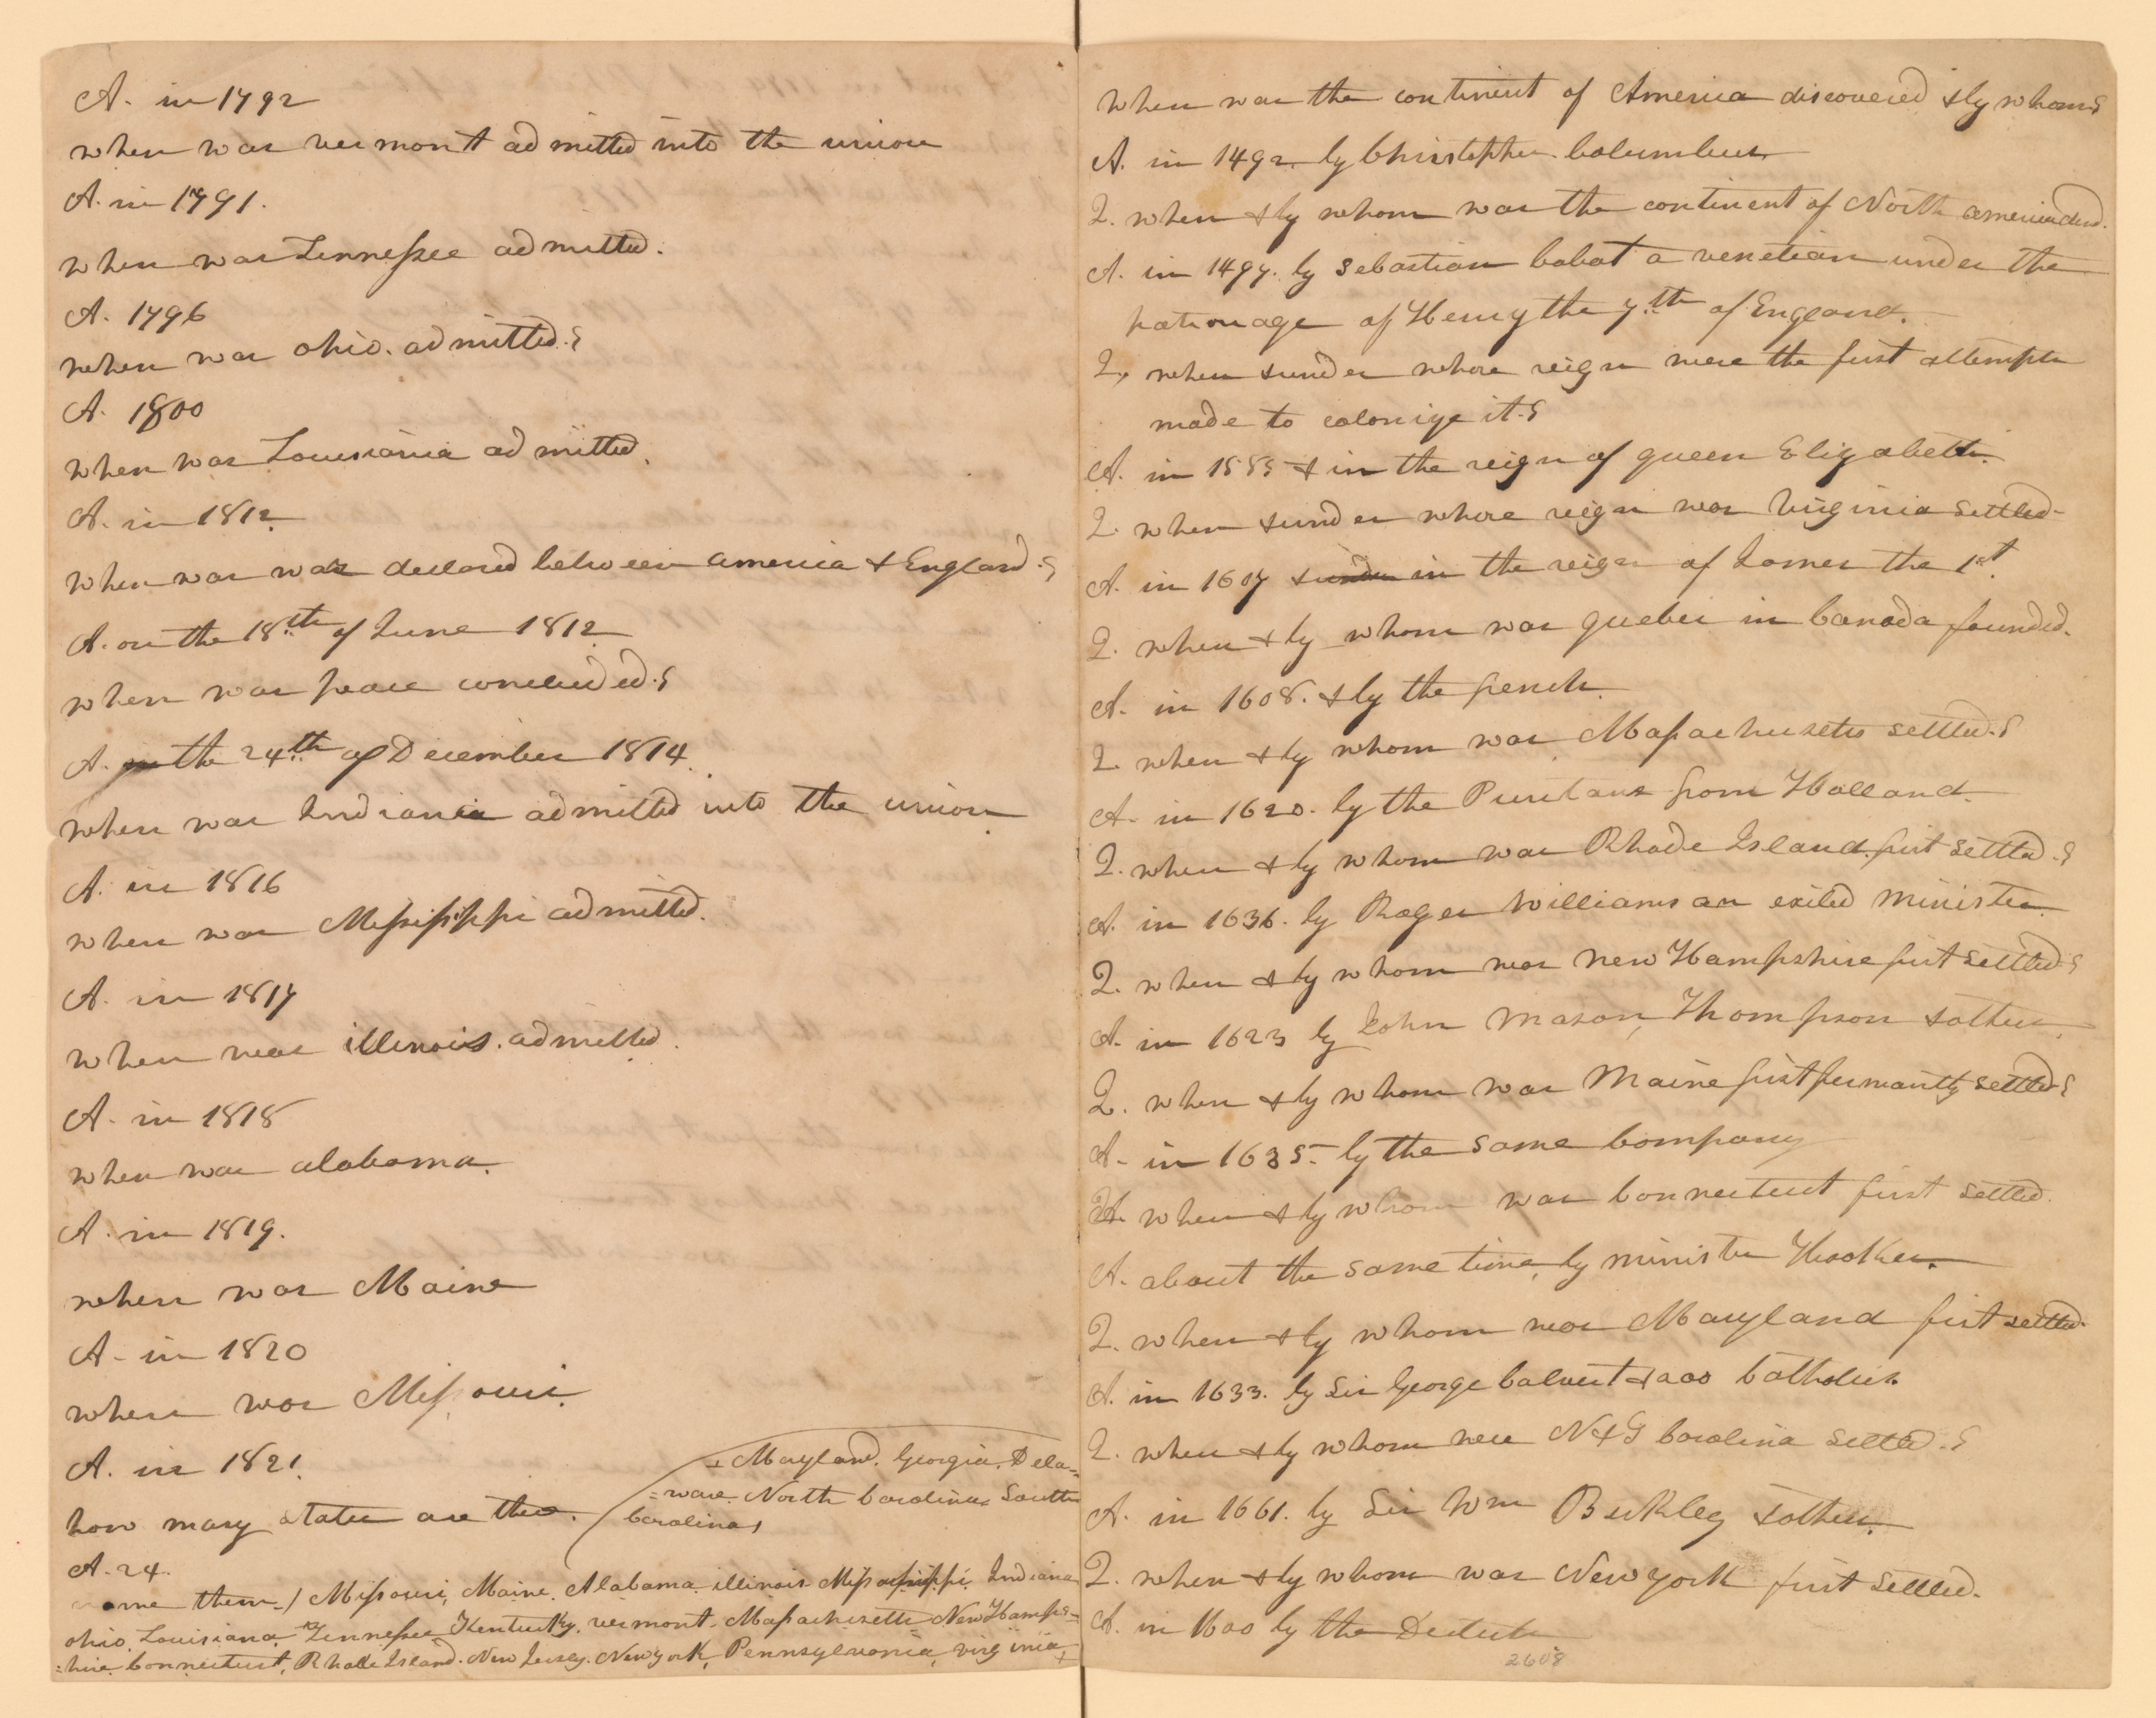 A. in 1792
when was vermont admitted into the union
A. in 1791.
when was Tennessee admitted.
A. 1796
when was ohio. admitted.?
A. 1800
when was Louisiania admitted.
A. in 1812.
when was war declared between america & England.?
A. on the 18.th of June 1812
when was peace concluded.?
A. the 24.th of December 1814.
when was Indiania admitted into the union.
A. in 1816
when was Missisippi admitted.
A. in 1817
when was illinois. admitted.
A. in 1818
when was alabama.
A. in 1819.
when was Maine
A. in 1820
when was Missouri.
A. in 1821.
how many states are there.
A. 24.
name them.) Missouri, Maine. Alabama. illinois. Indiana
ohio. Louisiana. Tennessee Kentucky. vermont. Massachisetts New Hamps=
=hire. Connecticut, Rhode Island. New Jersey. New york, Pennsylvania, virginia +
+ Maryland. Georgia. Dela=
=ware. North Carolina, South
Carolina,
when was the continent of America discovered & by whom?
A. in 1492. by Christopher Columbus.
Q. when & by whom was the continent of North america
A. in 1497. by Sebastian Cabot a venetian under the
patronage of Henry the 7.th of England.
Q, when & under whose reign were the first attempts
made to colonize it.?
A. in 1585 & in the reign of queen Elizabeth.
Q. when & under whose reign was Virginia settled-
A. in 1607 & under in the reign of James the 1st.
Q. when & by whom was quebec in Canada founded.
A. in 1608. & by the french.
Q. when & by whom was Massachusetts settled.?
A. in 1620. by the Puritans from Holland.
Q. when & by whom was Rhode Island. first settled.?
A. in 1636. by Roger Williams an exiled minister.
Q. when & by whom was new Hampshire first settled.?
A. in 1623 by John Mason, Thompson & others.
Q. when & by whom was Maine first permantly settled?
A. in 1635. by the same Company
Q. when & by whom was Connecticut first settled.
A. about the same time, by minister Hooker.
Q. when & by whom was Maryland first settled.
A. in 1633. by Sir George Calvert & 200 Catholics.
Q. when & by whom were N & S Carolina settled.?
A. in 1661. by Sir Wm Berkley & others.
Q. when & by whom was New york first settled.
A. in 1600 by the Dutch
2608